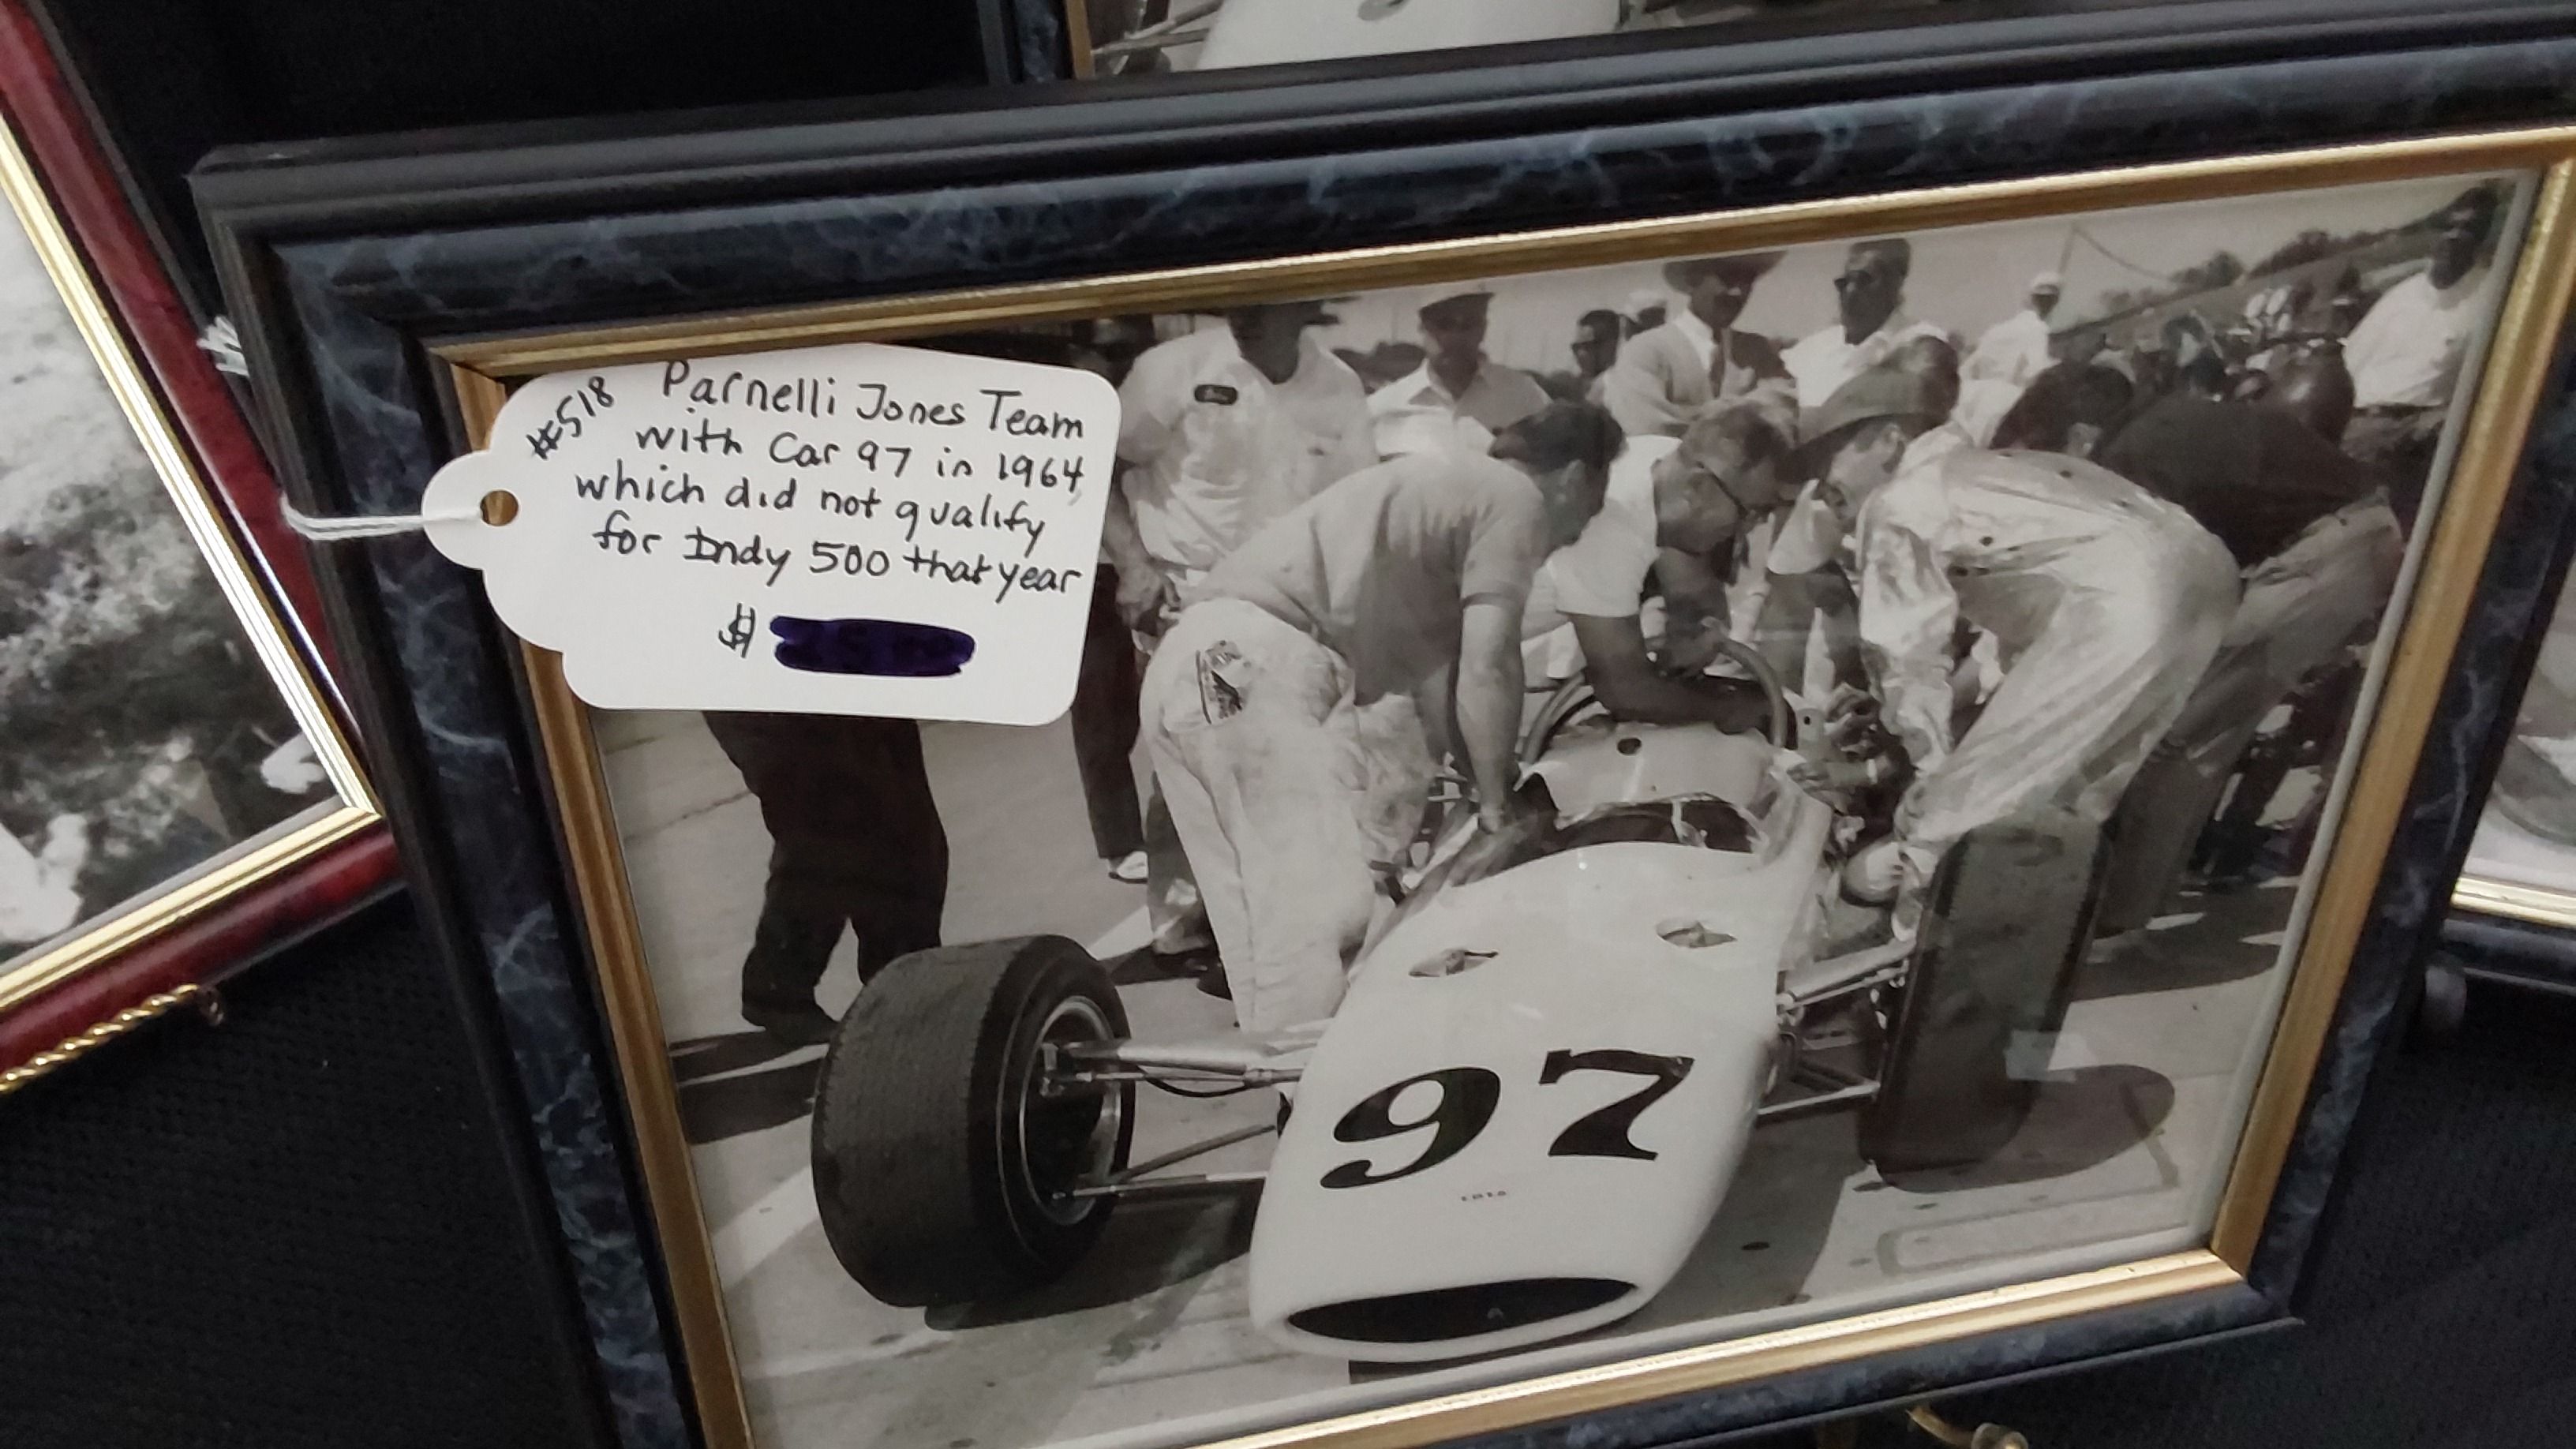 #518 Parnelli Jones Team
with Car 97 in 1964,
which did not qualify
for Indy 500 that year
$
97